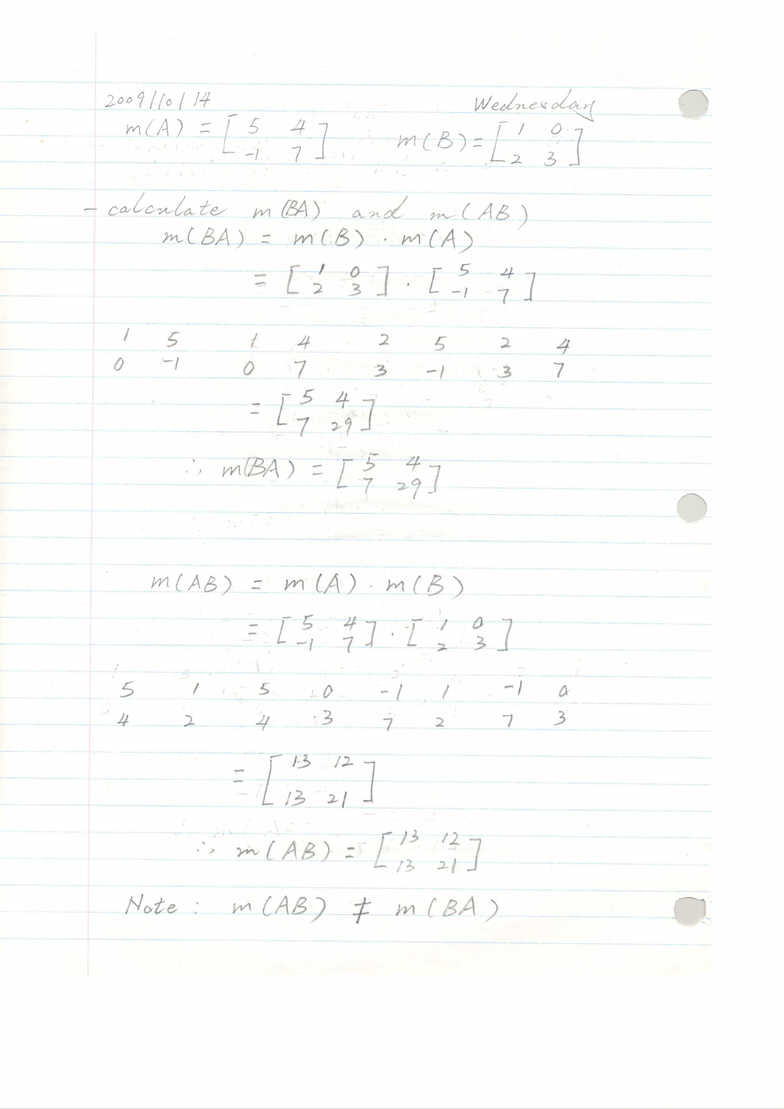 2009/10/14 Wednesday
m(A) = [ 5 4 m(B) = [ 1 0
-1 7 ] 2 3 ]
- calculate m(BA) and m(AB)
m(BA) = m(B) · m(A)
= [ 1 0 ] · [ 5 4
2 3 -1 7 ]
1 5 1 4 2 5 2 4
0 -1 0 7 3 -1 3 7
= [ 5 4
7 29 ]
∴ m(BA) = [ 5 4
7 29 ]
m(AB) = m(A) · m(B)
= [ 5 4 ] · [ 1 0
-1 7 2 3 ]
5 1 5 0 -1 1 -1 0
4 2 4 3 7 2 7 3
= [ 13 12
13 21 ]
∴ m(AB) = [ 13 12
13 21 ]
Note : m(AB) ≠ m(BA)